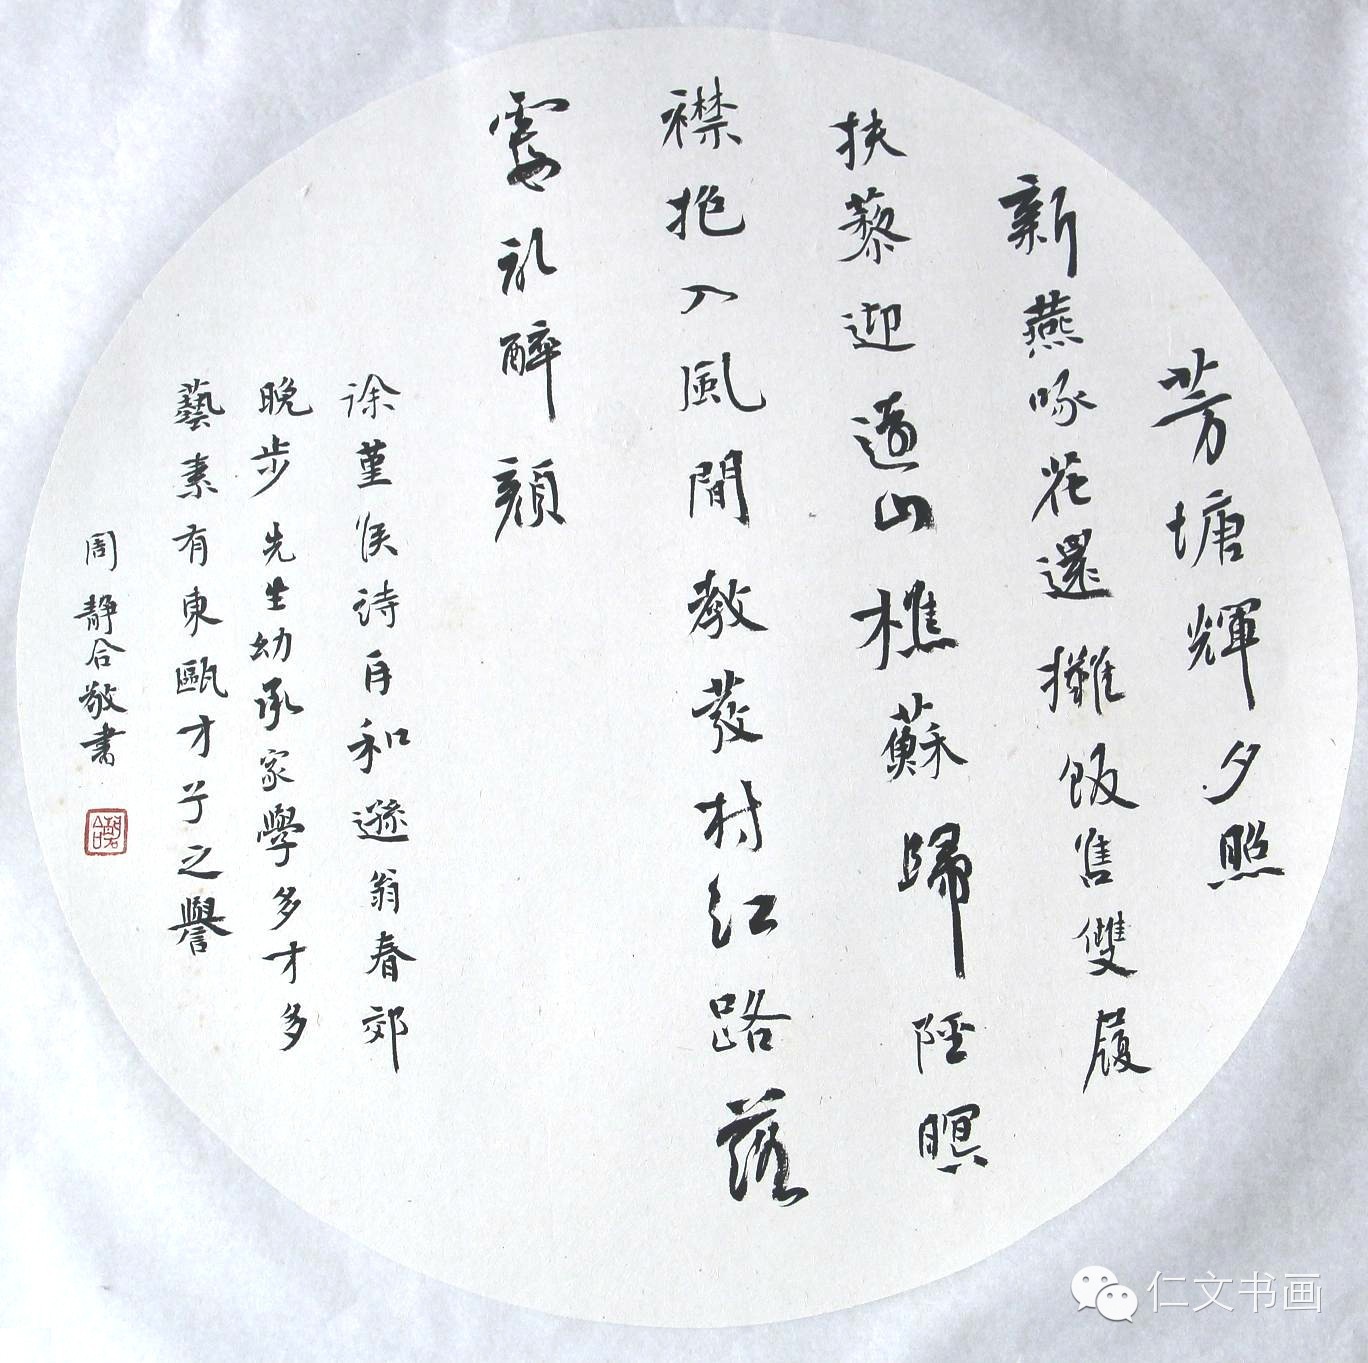 芳塘輝夕照
新燕啄花還攤飯售雙屐
扶藜迎遠山樵蘇歸陘暝
襟抱入風間教發村紅路落
霞孔醉顏
徐堇侯詩自和遜翁春郊
晚步先生幼承家學多才多
藝素有東甌才子之譽
周靜合敬書
仁文书画